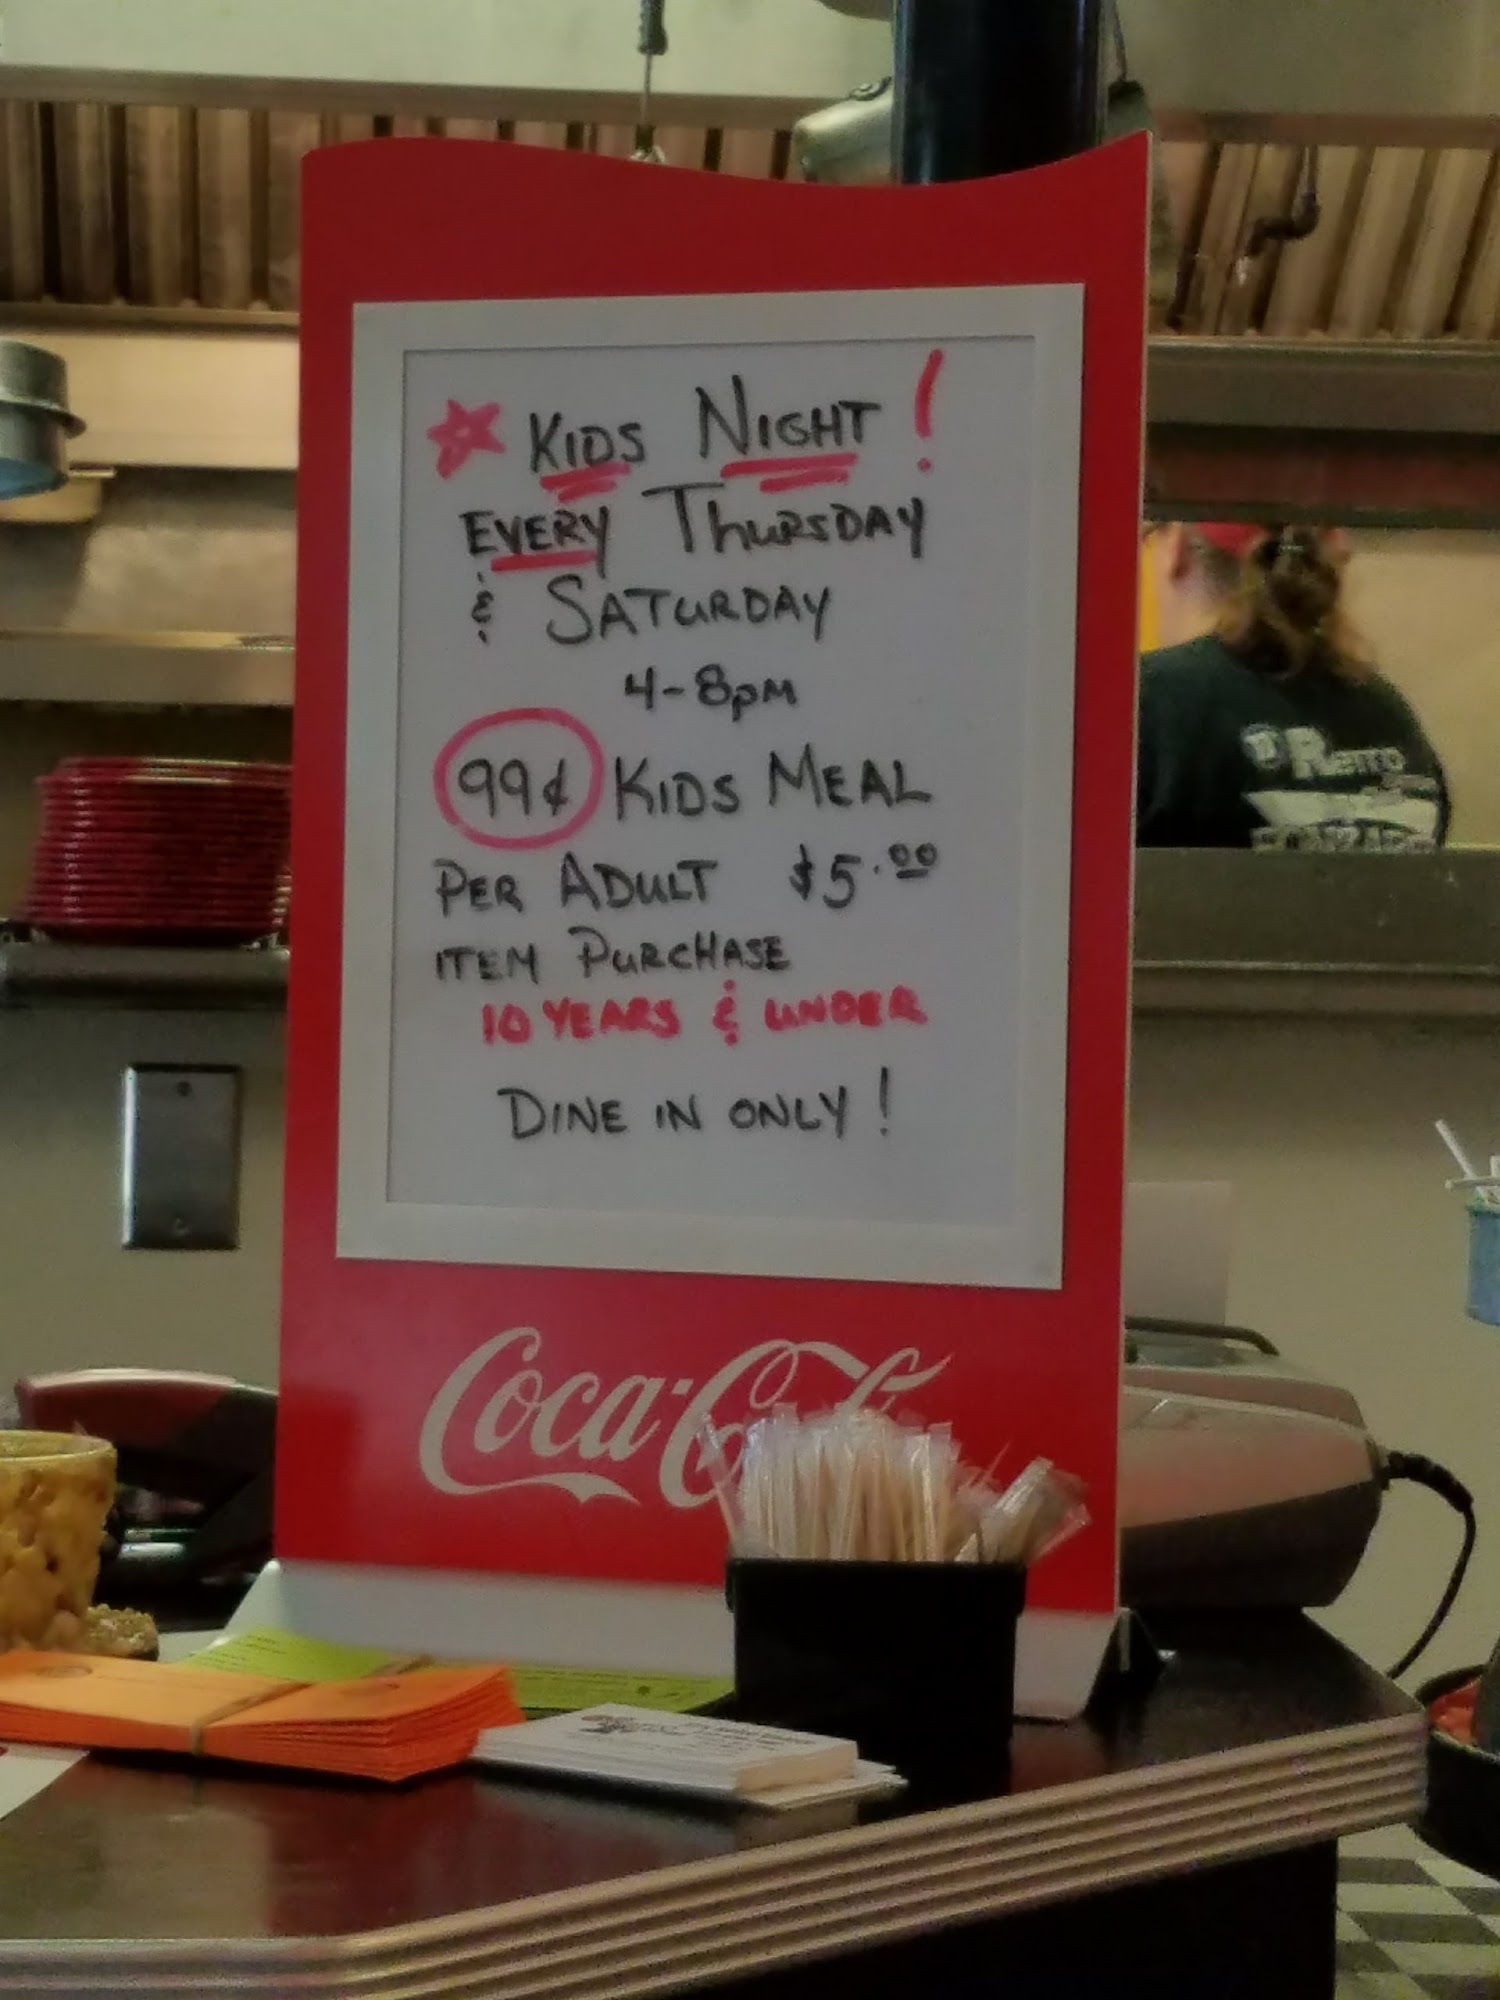 KIDS NIGHT!
EVERY THURSDAY
& SATURDAY
4-8PM
99¢ KIDS MEAL
PER ADULT $5.00
ITEM PURCHASE
10 YEARS & UNDER
DINE IN ONLY!
Coca-Cola
RETRO